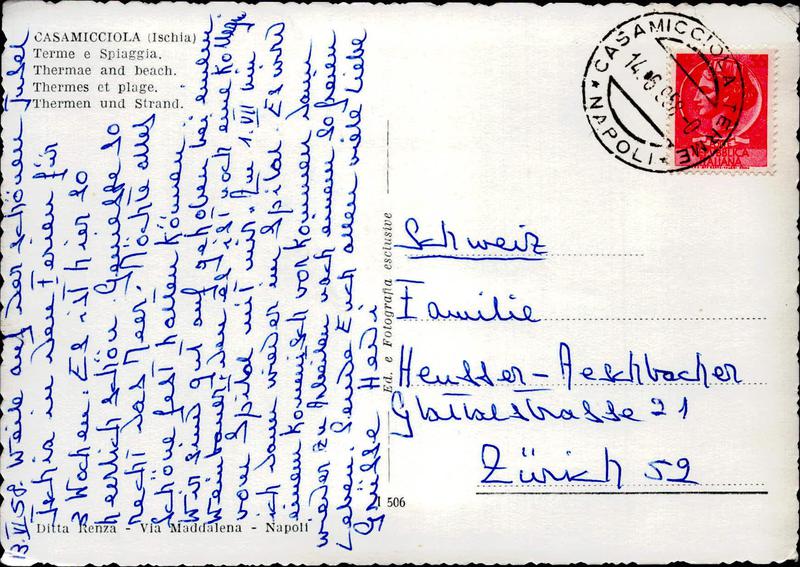 CASAMICCIOLA (Ischia)
Terme e Spiaggia.
Thermae and beach.
Thermes et plage.
Thermen und Strand.
13.VI.58. Weile auf der schönen Insel
Ischia in den Ferien für
3 Wochen. Es ist hier so
herrlich schön. Geniesse so
recht das Meer. Möchte alles
schöne fest halten können.
Wir sind gut aufgehoben bei einem
Weinbauer, den es ist noch eine Kolleg.
vom Spital mit mir. Am 1. VII bin
ich dann wieder im Spital. Es wird
einem komisch vorkommen dann
wieder zu Arbeiten nach einem so freien
Leben. Sende Euch allen viele liebe
Grüsse Hedi
Ditta Renza - Via Maddalena - Napoli
Ed. e Fotografia esclusive
I 506
CASAMICCIOLA TERME
* NAPOLI *
14.6.958
REPUBBLICA
ITALIANA
Schweiz
Familie
Heusser-Aeschbacher
Glattalstrasse 21
Zürich 52